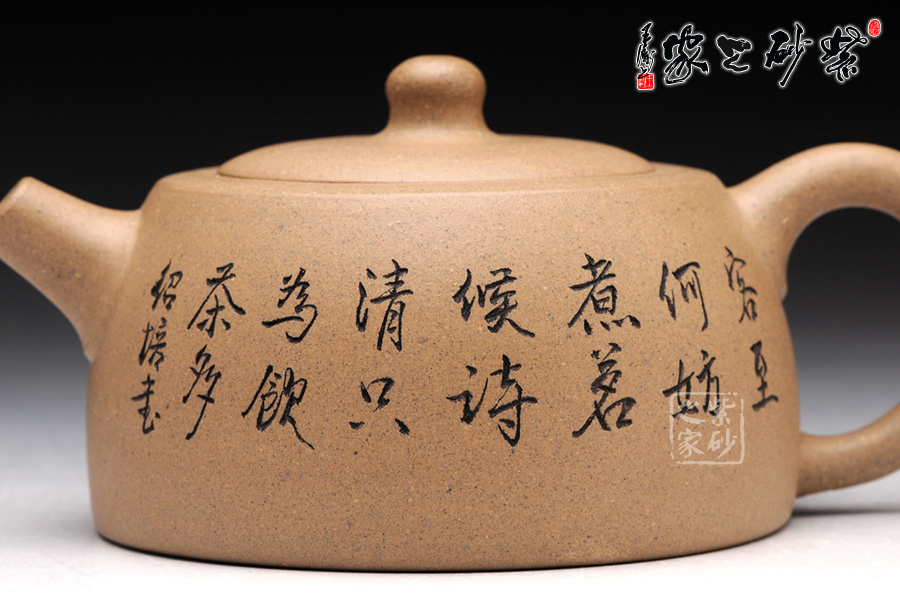 紫砂之家
客至
何妨
煮茗
候诗
清只
為飲
茶多
绍培书
紫砂之家